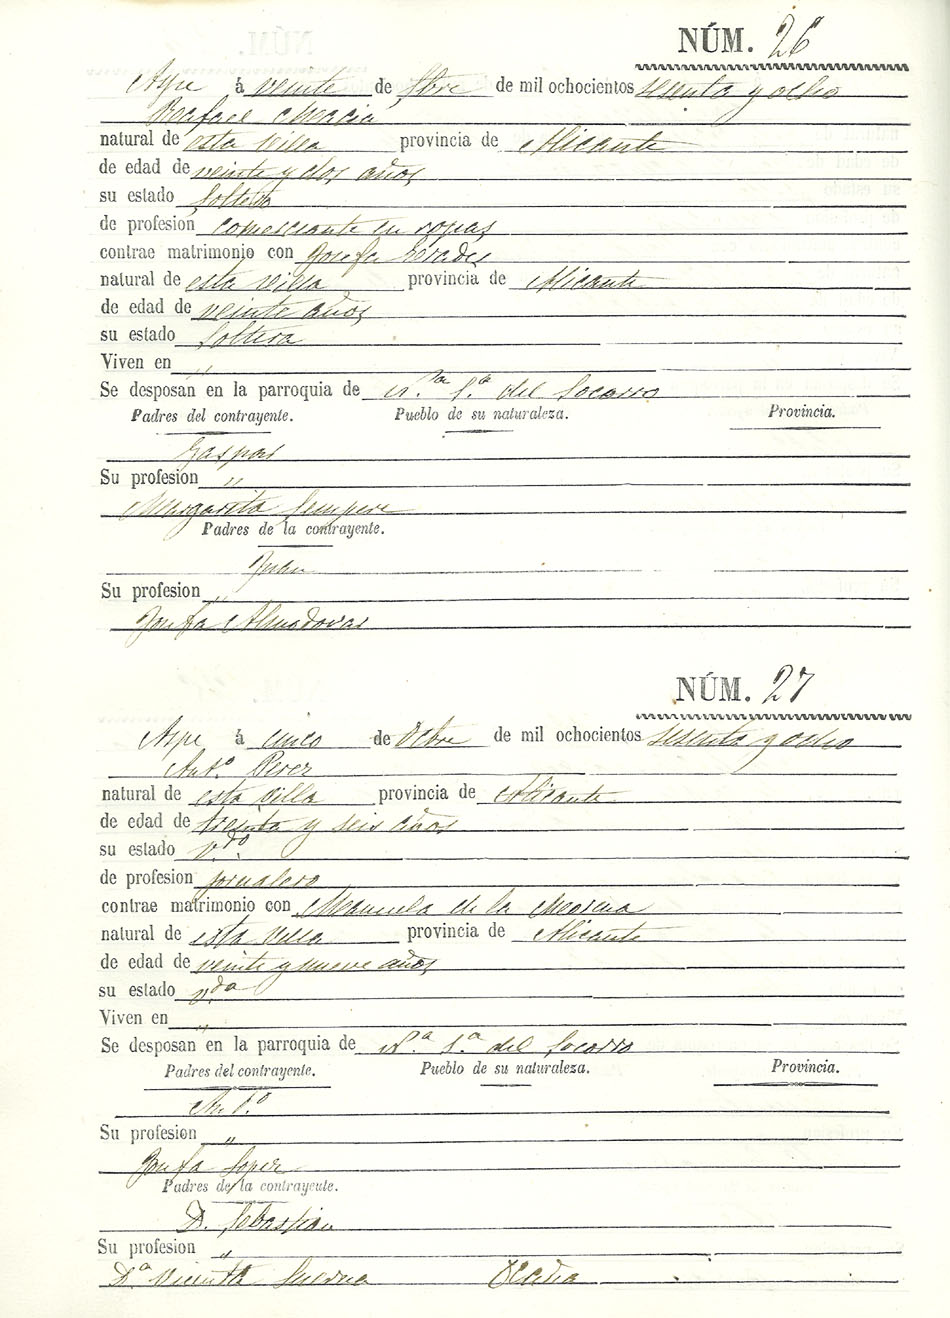 NÚM. 26
Aspe á veinte de 7bre de mil ochocientos sesenta y ocho
Rafael Macia
natural de esta villa provincia de Alicante
de edad de veinte y dos años
su estado Soltero
de profesión comerciante en ropas
contrae matrimonio con Josefa
natural de esta villa provincia de Alicante
de edad de veinte años
su estado Soltera
Viven en "
Se desposan en la parroquia de N.ra S.a del Socorro
Padres del contrayente. Pueblo de su naturaleza. Provincia.
Gaspar
Su profesion "
Margarita Sempere
Padres de la contrayente.
Juan
Su profesion "
Josefa Almodovar
NÚM. 27
Aspe á cinco de 8bre de mil ochocientos sesenta y ocho
Ant.o Perez
natural de esta villa provincia de Alicante
de edad de treinta y seis años
su estado v.do
de profesion jornalero
contrae matrimonio con Manuela de la
natural de esta villa provincia de Alicante
de edad de veinte y nueve años
su estado v.da
Viven en "
Se desposan en la parroquia de N.a S.a del Socorro
Padres del contrayente. Pueblo de su naturaleza. Provincia.
Ant.o
Su profesion "
Josefa Lopez
Padres de la contrayente.
D. Sebastian
Su profesion "
D.a Vicenta